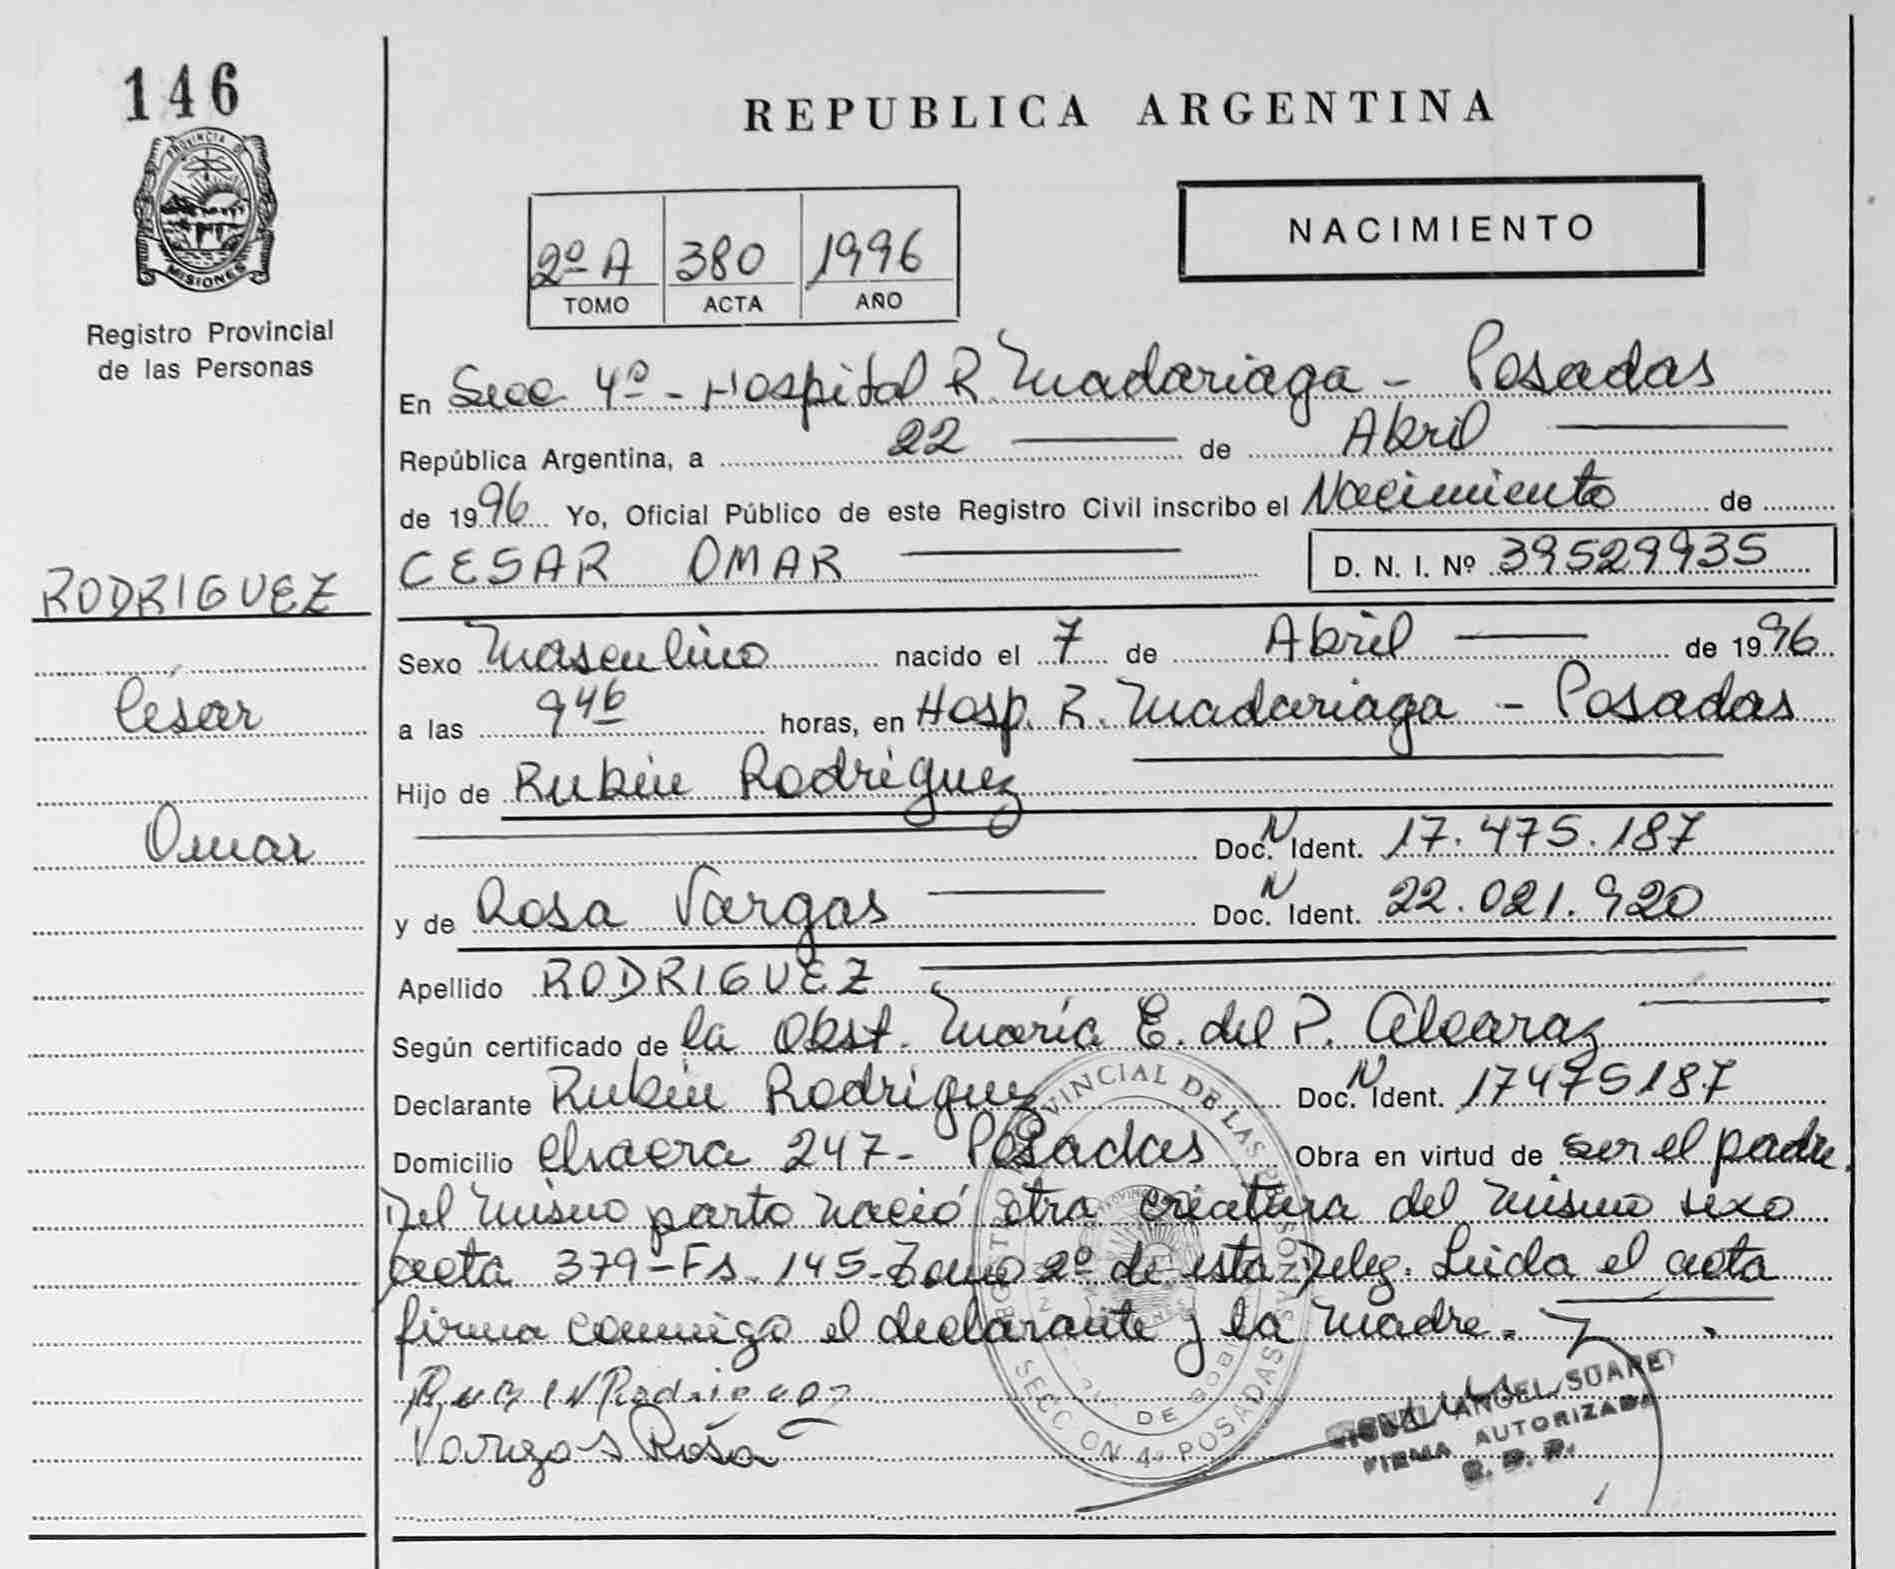 146
PROVINCIA DE
MISIONES
Registro Provincial
de las Personas
RODRIGUEZ
César
Omar
REPUBLICA ARGENTINA
2º A 380 1996
TOMO ACTA AÑO
NACIMIENTO
En Secc 4º - Hospital R. Madariaga - Posadas
República Argentina, a 22 de Abril
de 1996 Yo, Oficial Público de este Registro Civil inscribo el Nacimiento de
CESAR OMAR D. N. I. Nº 39529935
Sexo Masculino nacido el 7 de Abril de 1996
a las 9 46 horas, en Hosp. R. Madariaga - Posadas
Hijo de Rubén Rodríguez
Doc. N Ident. 17.475.187
y de Rosa Vargas Doc. N Ident. 22.021.920
Apellido RODRIGUEZ
Según certificado de la Obst. María E. del P. Alcaraz
Declarante Rubén Rodríguez Doc. N Ident. 17475187
Domicilio Chacra 247- Posadas Obra en virtud de ser el padre.
Del mismo parto nació otra criatura del mismo sexo
acta 379-Fs. 145-Tomo 2º de esta Deleg. Leida el acta
firma conmigo el declarante y la madre.
Rodriguez
Vargas Rosa
PROVINCIAL DE LAS
SECCION 4ª POSADAS
ANGEL SUAREZ
FIRMA AUTORIZADA